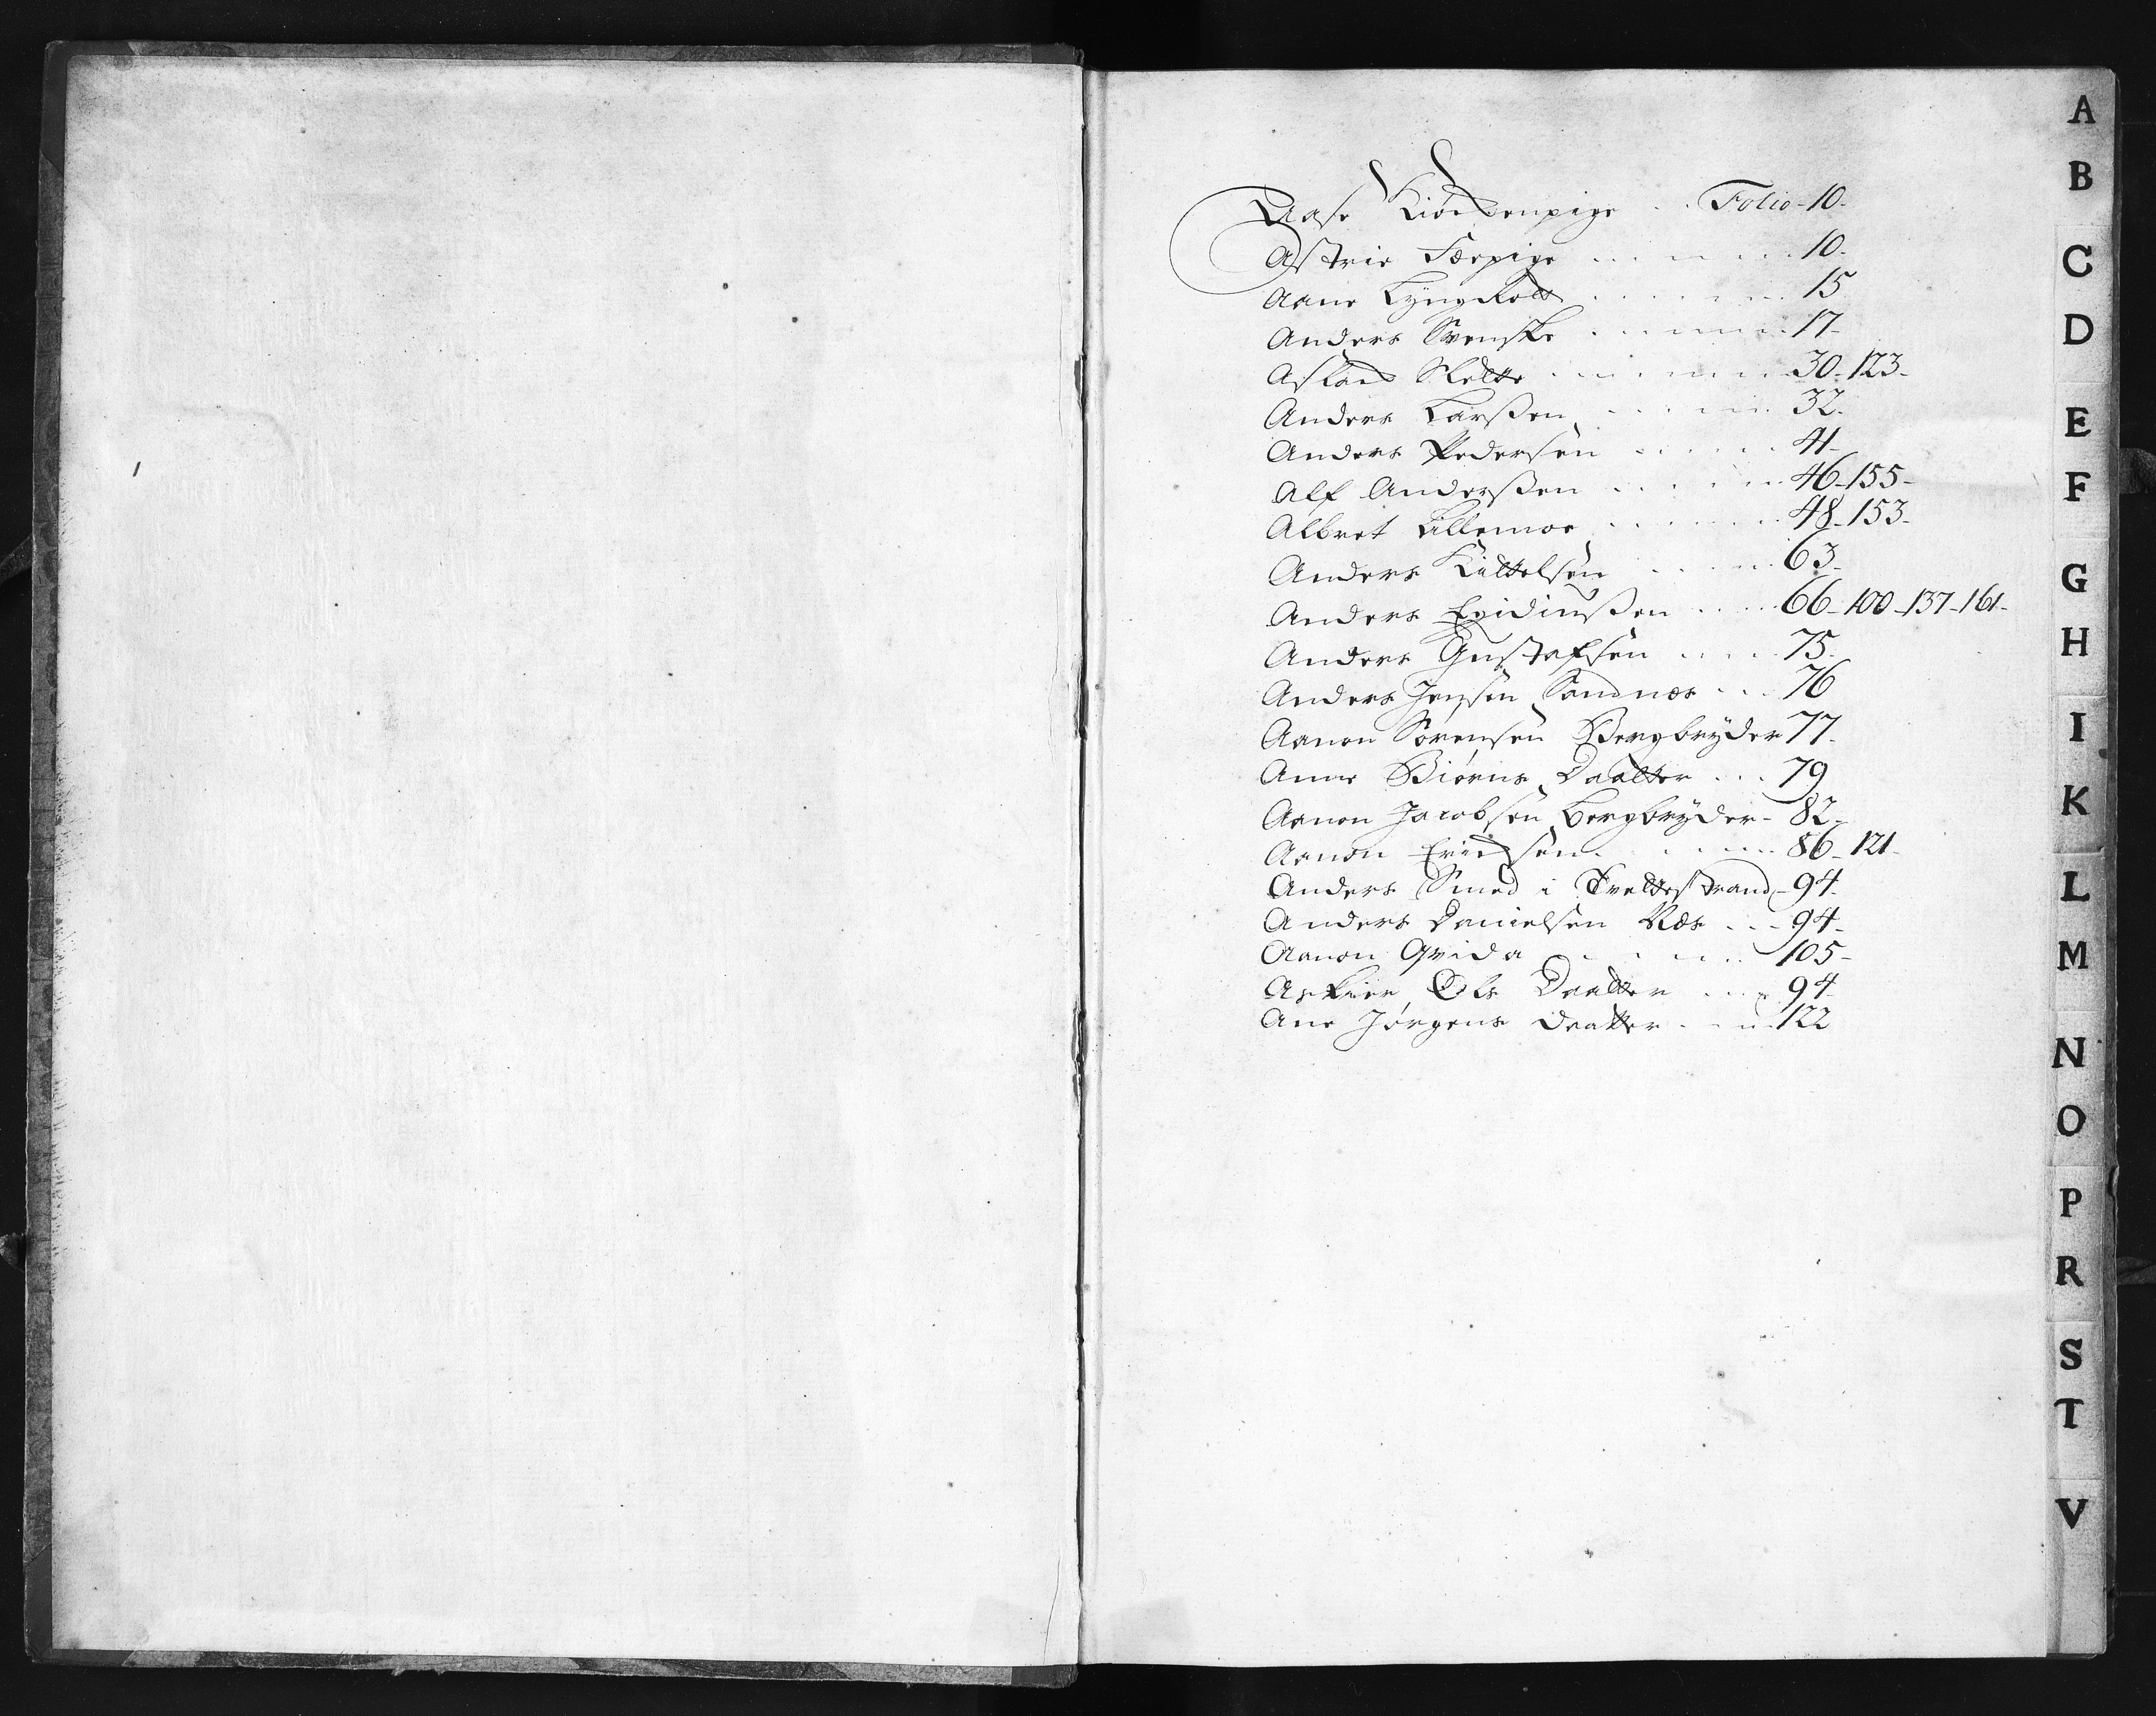 Aase Kiøckenpige . . Folio - 10 -
Astrie Fæepige . . . . . . 10 -
Aane Lyng . . . . . . 15
Anders Svenske . . . . . . 17 -
Aslac Slette . . . . . . 30 - 123 -
Anders Larßen . . . . . 32 -
Anders Pedersen . . . . . 41 -
Alf Anderßen . . . . . 46 - 155 -
Albret Lillemoe . . . . . 48 - 153 -
Anders Kittelsen . . . . . 63 -
Anders Egidiußen . . . . . 66 - 100 - 137 - 161 -
Anders Gustafsen . . . . 75 -
Anders Jensen Sandnæs . . . 76
Aanon Sørensen Bergbryder 77 -
Anne Biørns Daatter . . . 79
Aanon Jacobsen Bergbryder - 82 -
Aanon Ericksen . . . . . 86 - 121 -
Anders Smed i Tvettestrand - 94 -
Anders Danielsen Næs . . . 94 -
Aanon Qvida . . . . . 105 -
Ols Daatter . . . 94 -
Ane Jørgens Daatter . . . 122
A
B
C
D
E
F
G
H
I
K
L
M
N
O
P
R
S
T
V